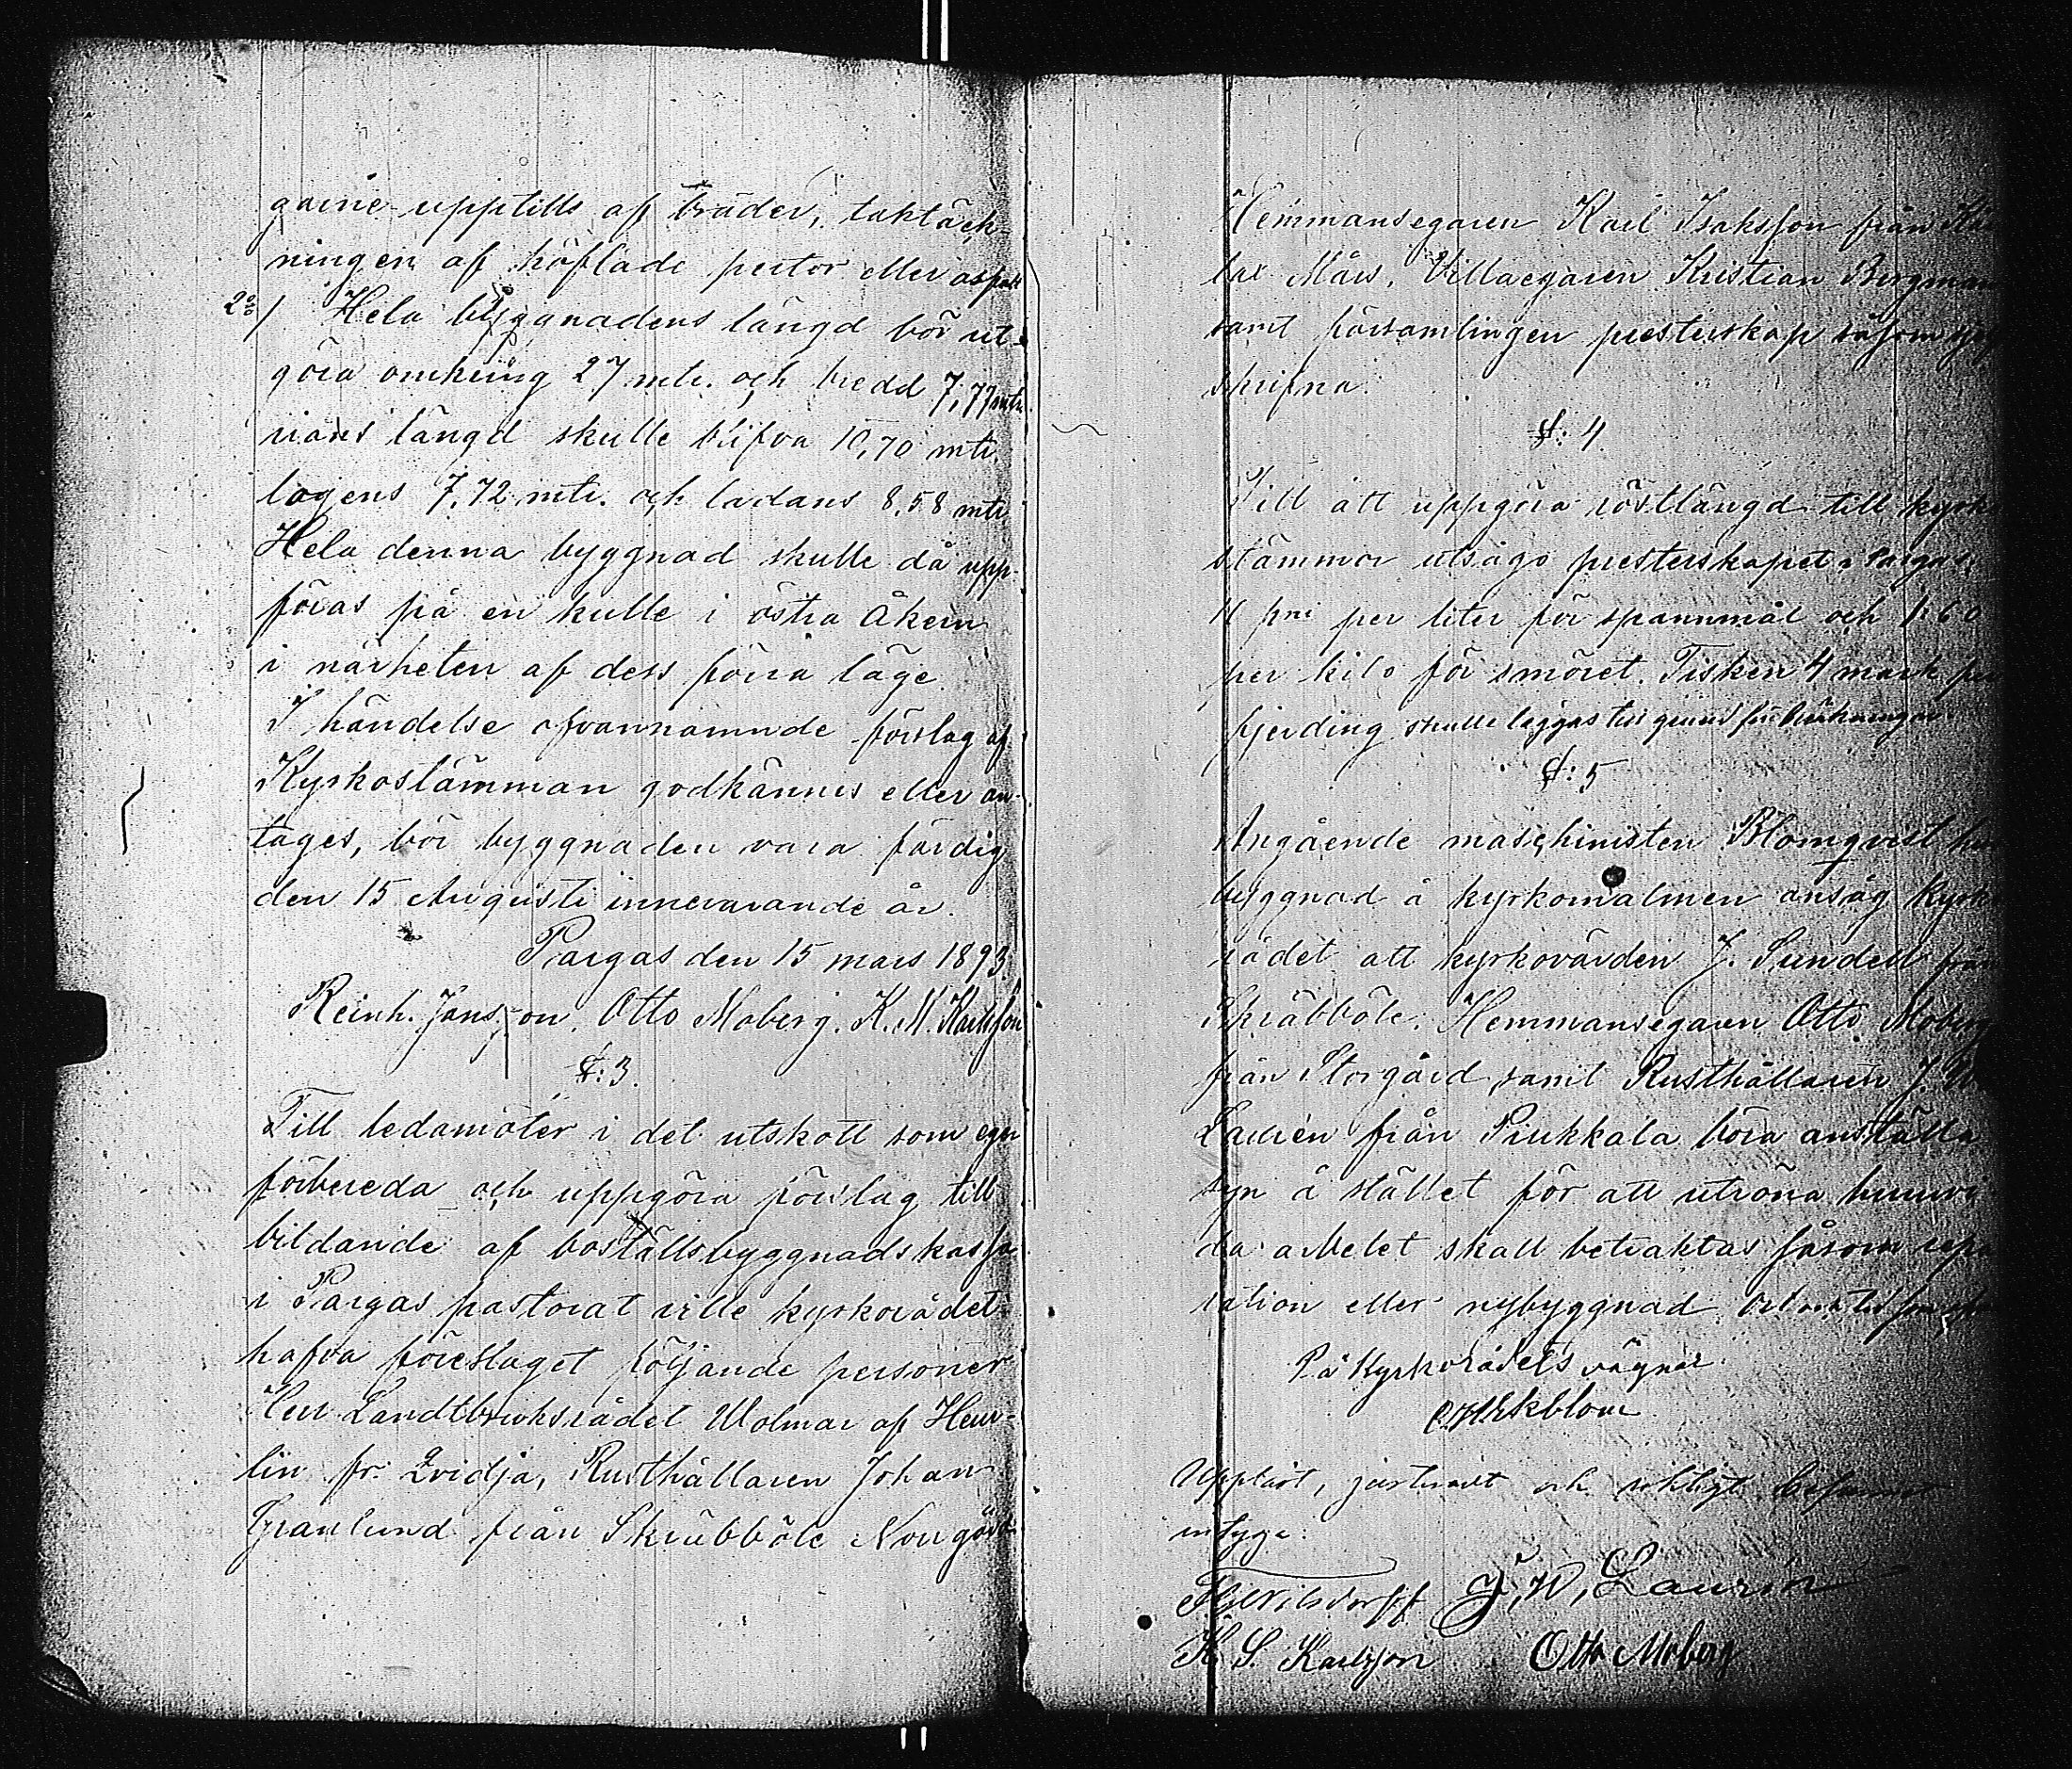 upptills af bräder, taktäck-
ningen af höflade pertor eller
2o/ Hela byggnadens längd bör ut-
göra omkring 27 mtr. och bredd 7,77 mtr.
rians längd skulle blifva 10,70 mtr.
logens 7,72 mtr. och ladans 8,58 mtr
Hela denna byggnad skulle då upp-
föras på en kulle i östra åkern
i närheten af dess förra läge.
I händelse ofvannamnde förslag af
Kyrkostämman godkännes eller an-
tages, bör byggnaden vara färdig
den 15 Augusti innevarande år.
Pargas den 15 mars 1893.
Reinh. Jansson. Otto Moberg. K. M. Karlsson
§: 3.
Till ledamöter i det utskott som eger
förbereda och uppgöra förslag till
bildande af boställsbyggnadskassa
i Pargas pastorat ville kyrkorådet
hafva föreslaget följande personer
Herr Landtbruksrådet Wolmar af Heur-
lin fr. Qvidja, Rusthållaren Johan
Granlund från Skräbböle Norrgård
Hemmansegaren Karl Isaksson från
lax Mårs, Villaegaren Kristian Bergman
samt församlingen presterskap såsom
skrifna.
§: 4.
Till att uppgöra röstlängd till kyrko
stämmor utsågs presterskapet i Pargas,
11 pni per liter för spannmål och 1:60
per kilo för smöret. Fisken 4 mark per
fjerding skulle läggas till grund för
§: 5
Angående maschinisten Blomqvist
byggnad å kyrkomalmen ansåg kyrko
rådet att kyrkovärden J. Sundell från
Skräbböle, Hemmansegaren Otto Moberg
från Storgård samt Rusthållaren J. W.
Laurén från Piukkala böra anställa
syn å stället för att utröna huruvi
da arbetet skall betraktas såsom repa
ration eller nybyggnad.
På Kyrkorådets vägnar.
Ekblom
Uppläst, justeradt och riktigt befunnet
intyga:
J. W. Laurén
K. S. Karlsson Otto Moberg